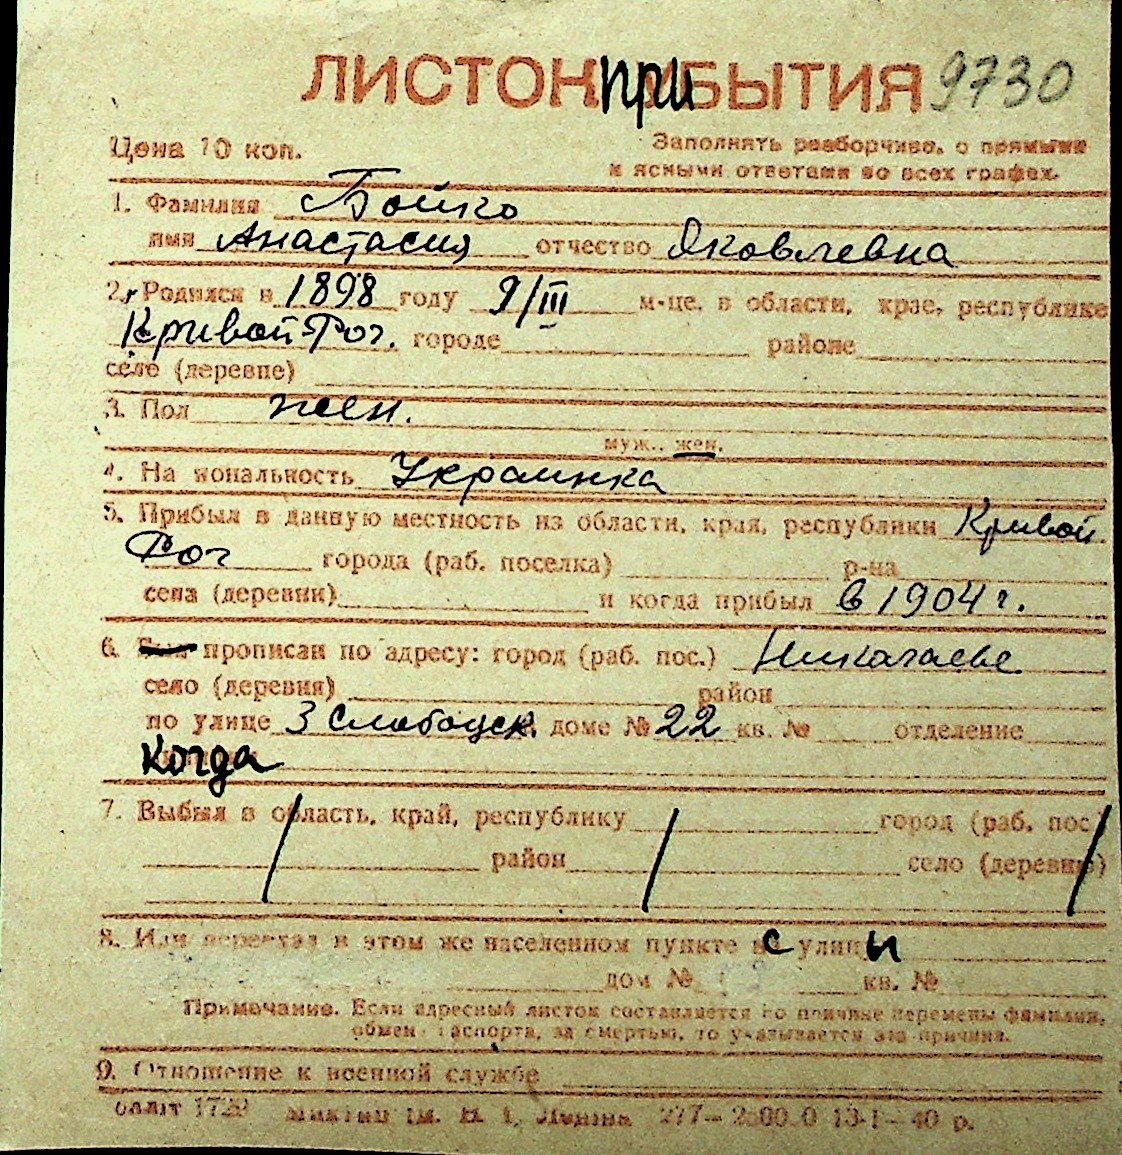 ЛИСТОК ПРИБЫТИЯ 9730
Цена 10 коп.
Заполнять разборчиво, с прямыми
и ясными ответами во всех графах.
1. Фамилия Бойко
имя Анастасия отчество Яковлевна
2. Родился в 1898 году 9/III м-це, в области, крае, республике
Кривой-Рог. городе районе
селе (деревне)
3. Пол жен.
муж., жен.
4. Национальность Украинка
5. Прибыл в данную местность из области, края, республики Кривой
Рог города (раб. поселка) р-на
села (деревни) и когда прибыл в 1904 г.
6. прописан по адресу: город (раб. пос.) Николаеве
село (деревня) район
по улице 3 Слободск. доме № 22 кв. № отделение
когда
7. Выбыл в область, край, республику город (раб. пос.)
район село (деревню)
8. Или переехал в этом же населенном пункте с улицы
дом № кв. №
Примечание. Если адресный листок составляется по причине перемены фамилии,
обмена паспорта, за смертью, то указывается эта причина.
9. Отношение к военной службе
1729 ім. В. І. Леніна 277— 13-I—40 р.